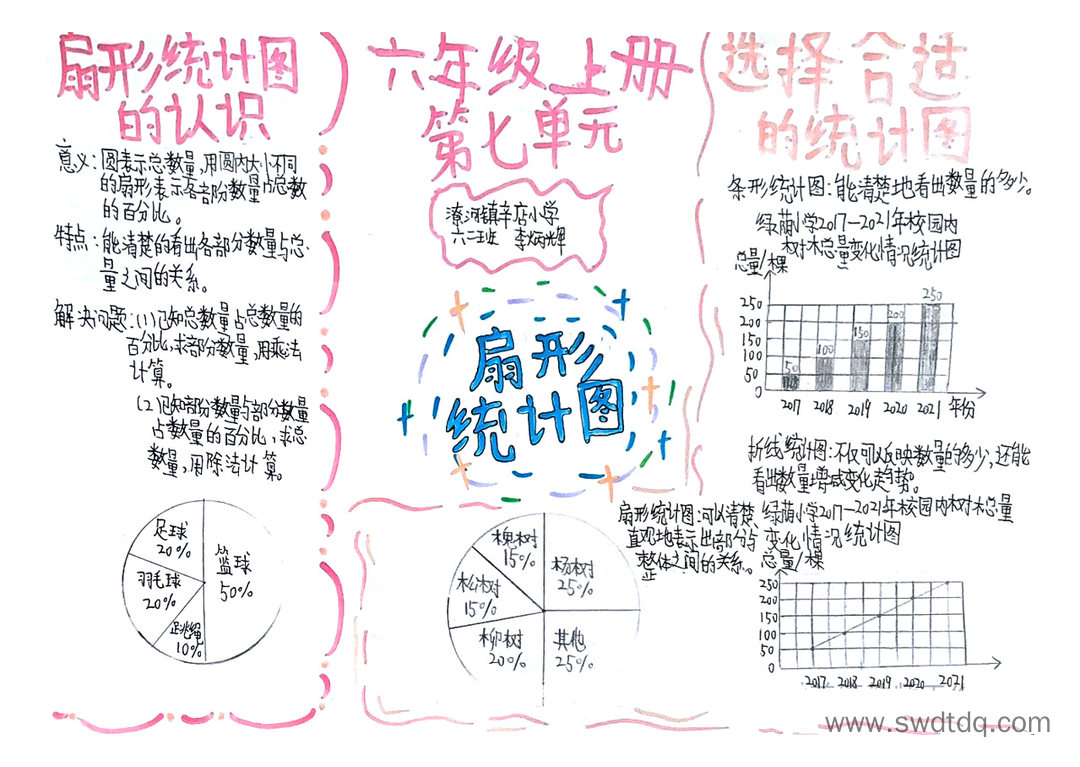 扇形统计图
的认识
意义:圆表示总数量,用圆内大小不同
的扇形表示各部份数量占总数
的百分比。
特点:能清楚的看出各部分数量与总
量之间的关系。
解决问题:(1)已知总数量占总数量的
百分比,求部分数量,用乘法
计算。
(2)已知部分数量与部分数量
占数量的百分比,求总
数量,用除法计算。
足球
20%
羽毛球
20%
跳绳
10%
篮球
50%
六年级上册
第七单元
潦河镇辛店小学
六二班 李炳辉
扇形
统计图
扇形统计图:可以清楚、
直观地表示出部分与
整体之间的关系。
槐树
15%
杨树
25%
松树
15%
柳树
20%
其他
25%
选择合适
的统计图
条形统计图:能清楚地看出数量的多少。
绿荫小学2017—2021年校园内
树木总量变化情况统计图
总量/棵
250
200
150
100
50
0
50
100
150
200
250
2017 2018 2019 2020 2021 年份
折线统计图:不仅可以反映数量的多少,还能
看出数量增减变化趋势。
绿荫小学2017—2021年校园内树木总量
变化情况统计图
总量/棵
250
200
150
100
50
0
2017 2018 2019 2020 2021
www.swdtdq.com